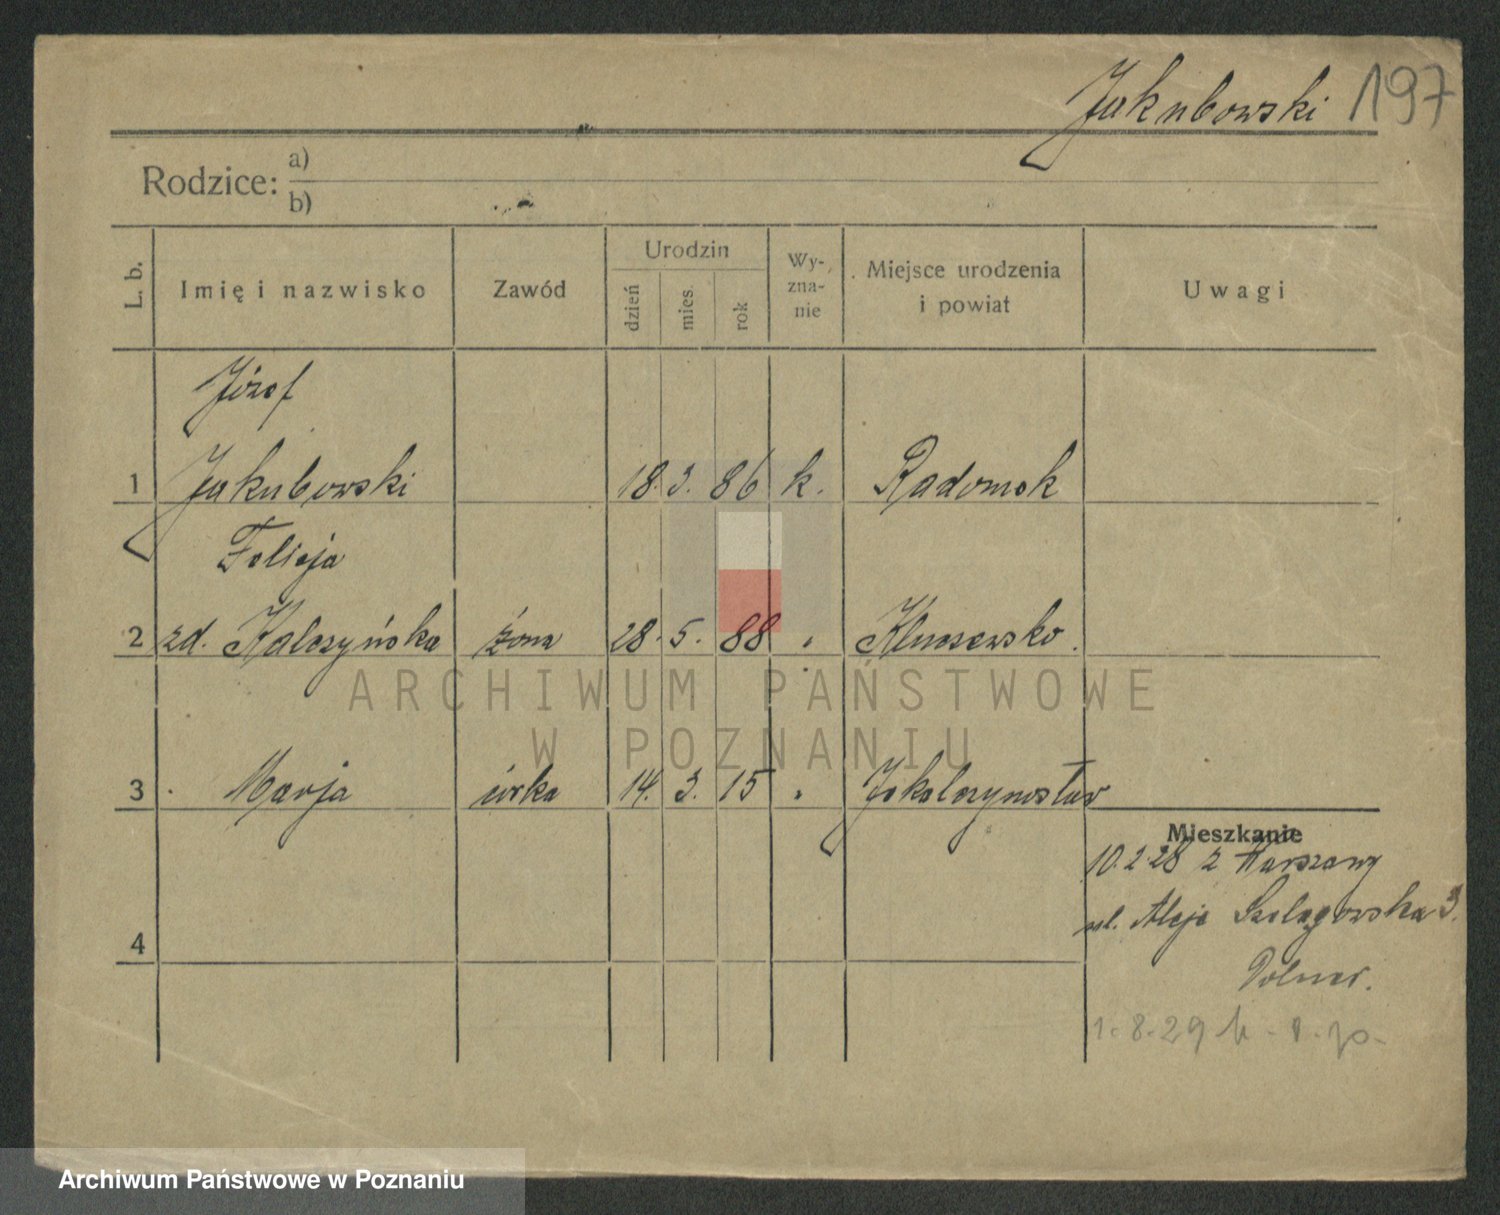 Jakubowski 197
Rodzice: a)
b)
L. b.
Imię i nazwisko
Zawód
Urodzin
dzień
mies.
rok
Wy-
zna-
nie
Miejsce urodzenia
i powiat
Uwagi
Józef
1 Jakubowski 18. 3. 86 k. Radomsk
Felicja
2 zd. Kalczyńska żona 28. 5. 88 " Kluczewsko.
ARCHIWUM PAŃSTWOWE
W POZNANIU
3 Marja córka 14. 3. 15 "
Mieszkanie
10.2.28 z Warszawy
ul. Aleje Szelągowska 3.
4
1.8.29
Archiwum Państwowe w Poznaniu